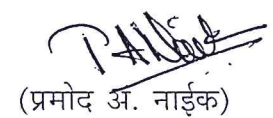 (प्रमोद अ. नाईक)